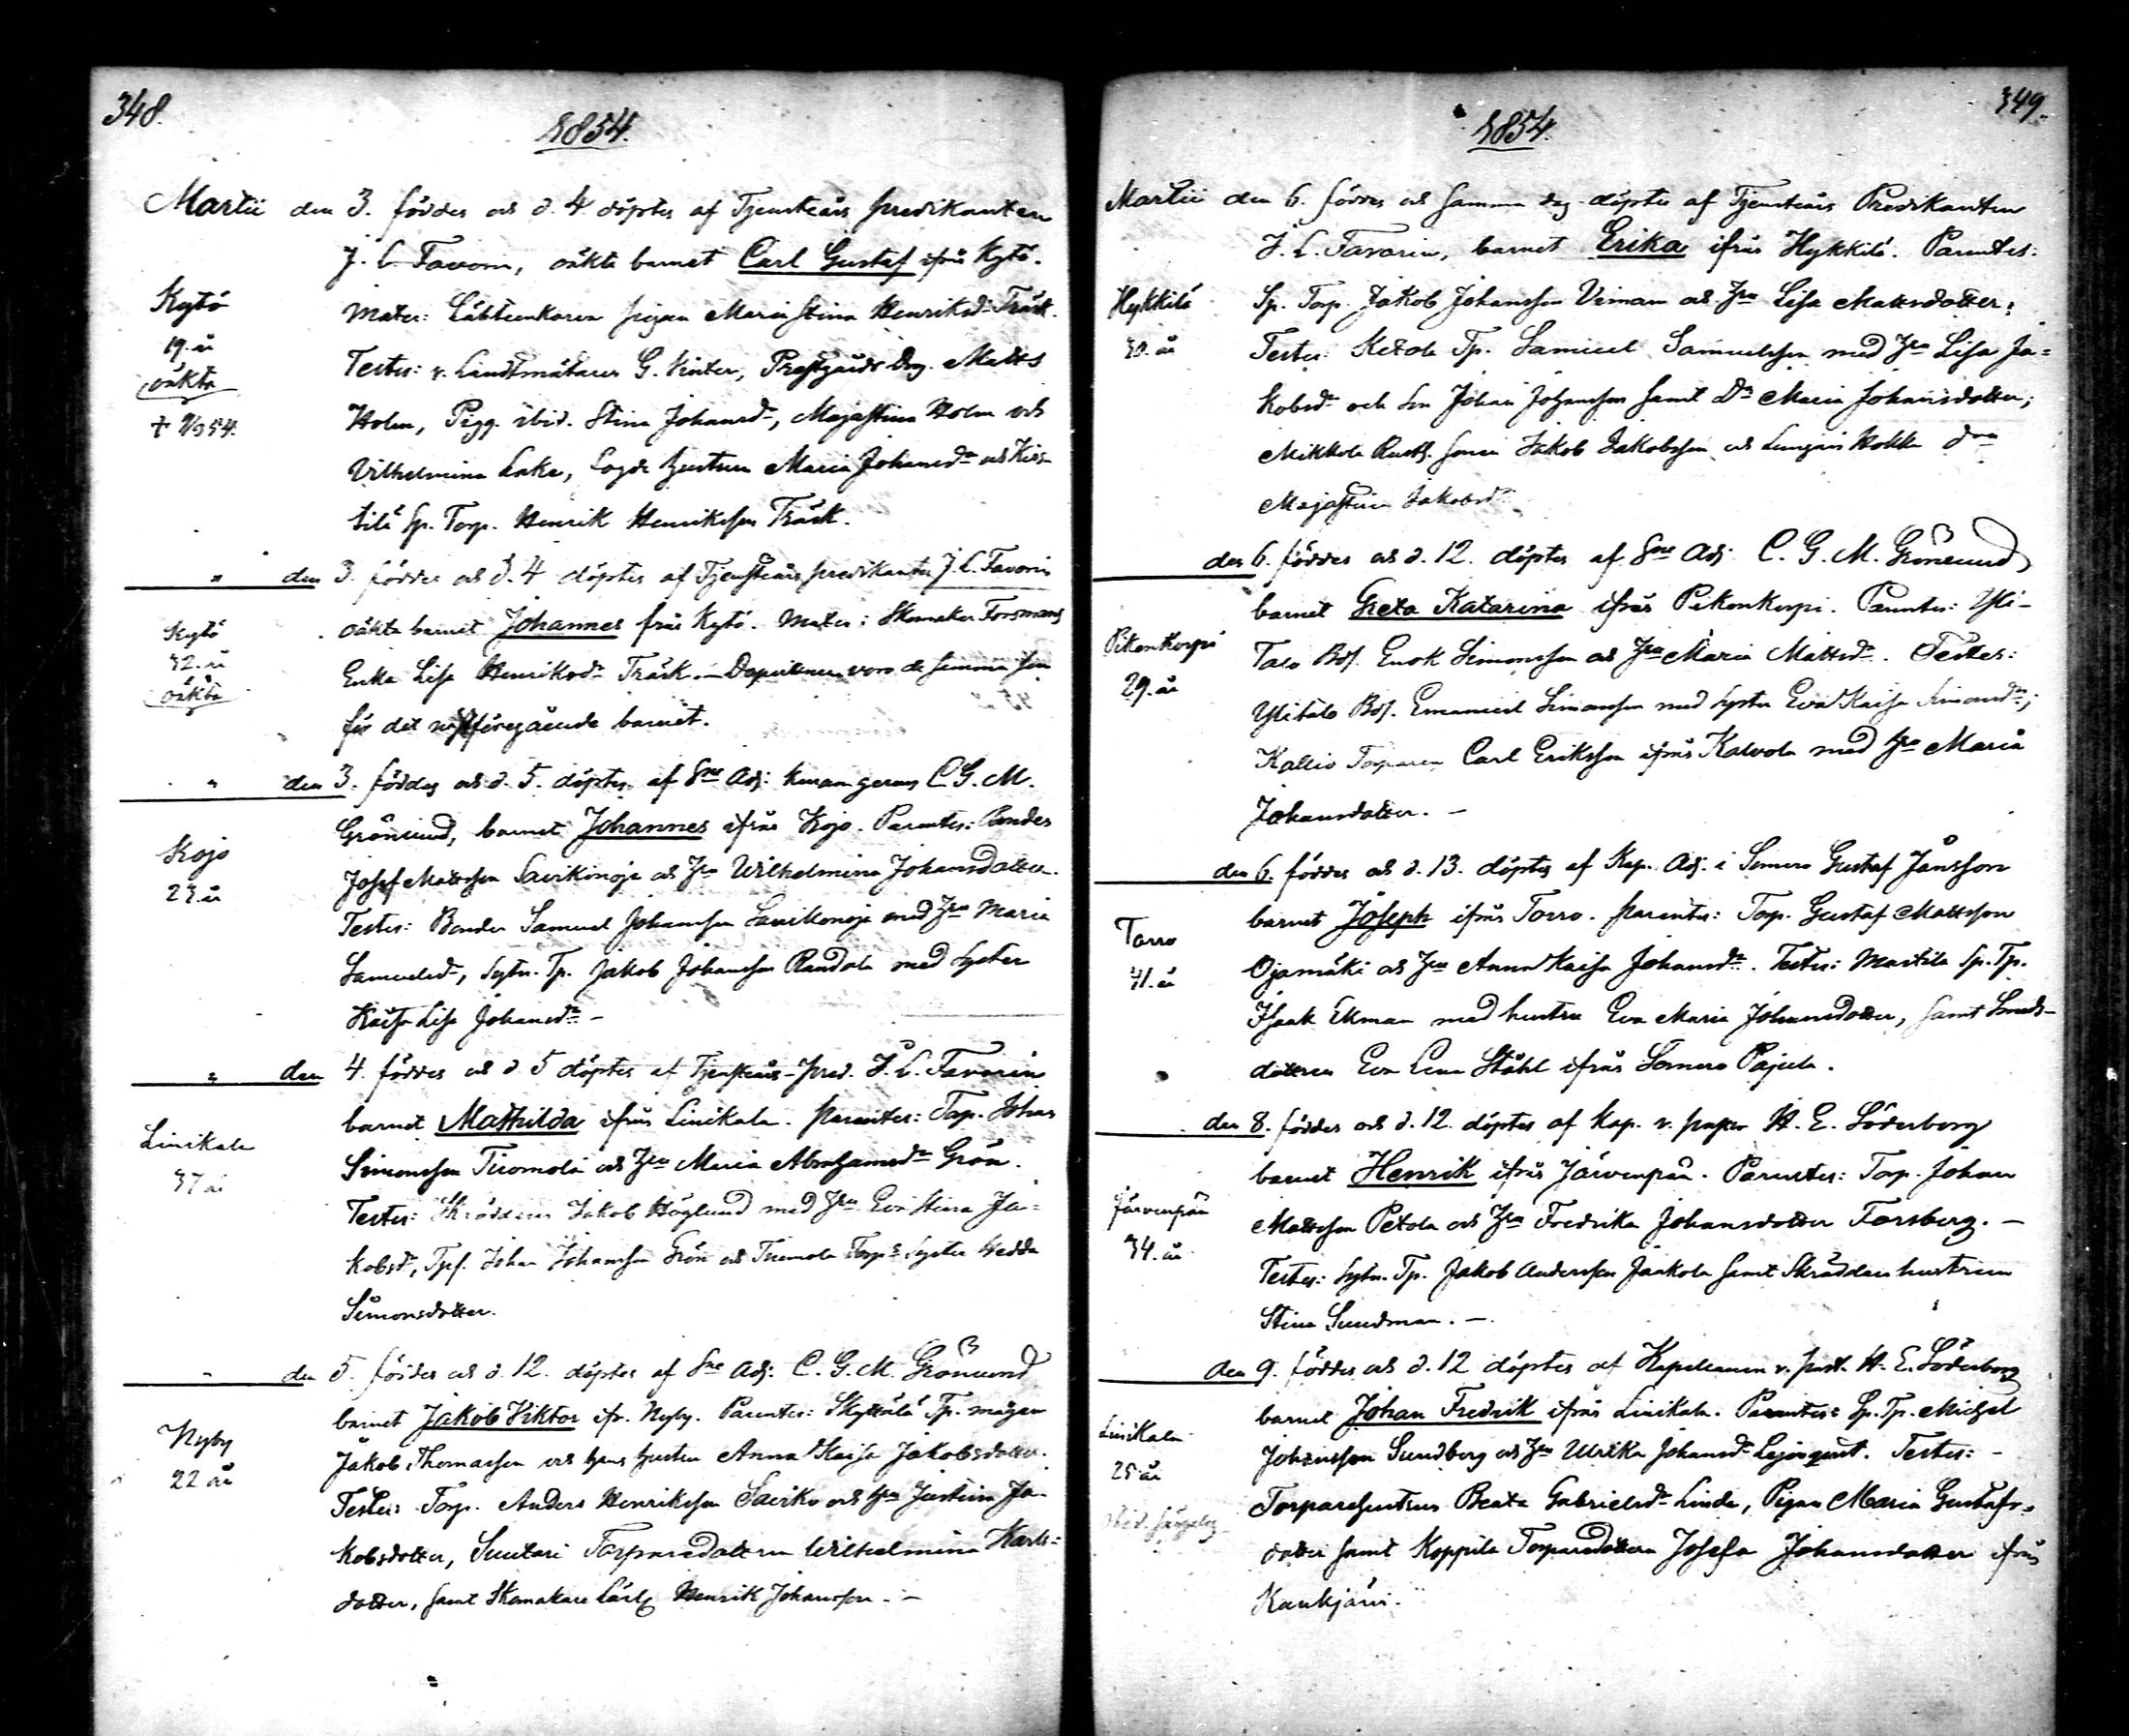 348.
1854.
Martii den 3. föddes och d. 4 döptes af Tjensteårs predikanten
J. L. Favorin, oäkta barnet Carl Gustaf ifrån Kytö.
Kytö
19. år
oäkta
Mater: pigan Maria Stina Henriksd:r Träsk.
Testes: v. Landtmätaren G. Winter, Prestgårds Drg. Matts
Holm, Pigg. ibid. Stina Johansd:r, Majastina Holm och
Vilhelmina Lake, hustrun Maria Johansd:r och Kis-
tilä Sp. Torp. Henrik Henriksson Träsk.
" den 3. föddes och d. 4 döptes af Tjensteårs predikanten J. L. Favorin
Kytö
32. år
oäkta
oäkta barnet Johannes från Kytö. Mater: Skomakar Forsmans
Enka Lisa Henriksd:r Träsk. — voro de samma som
för det nästföregående barnet.
" den 3. föddes och d. 5. döptes af S:ne Adj: C. G. M.
Kojo
23. år
Grönlund, barnet Johannes ifrån Kojo. Parentes: Bonden
Josef Mattsson Savikonoja och H:u Wilhelmina Johansdotter.
Testes: Bonden Samuel Johansson Savikonoja med H:u Maria
Samuelsd:r, Sytn. Tp. Jakob Johansson Randala med Syster
Kaisa Lisa Johansd:r —
" den 4. föddes och d. 5 döptes af Tjensteårs-pred. J. L. Favorin
Linikala
37 år
barnet Mathilda ifrån Linikala. Parentes: Torp. Johan
Simonsson Tuomola och H:u Maria Abrahamsd:r Grön.
Testes: Skräddaren Jakob Höglund med H:u Eva Stina Ja-
kobsd:r, Johan Johansson Grön och Tuomola Torp:s Syster Hedda
Simonsdotter.
" den 5. föddes och d. 12. döptes af S:ne Adj: C. G. M. Grönlund
Nyby
22 år
barnet Jakob Viktor ifr. Nyby. Parentes: Skyttälä Tp. mågen
Jakob Thomasson och hans hustru Anna Kaisa Jakobsdotter.
Testes: Torp. Anders Henriksson Saviko och H:u Justina Ja-
kobsdotter, Suutari Torparedottern Wilhelmina Karls-
dotter, samt Skomakare Lärl. Henrik Johansson. —
349.
1854.
Martii den 6. föddes och samma dag döptes af Tjensteårs Predikanten
J. L. Favorin, barnet Erika ifrån Hykkilä. Parentes:
Hykkilä
30. år
Sp. Torp. Jakob Johansson Viman och H:u Lisa Mattsdotter;
Testes: Ketola Tp. Samuel Samuelsson med H:u Lisa Ja-
kobsd:r och Son Johan Johansson samt D:r Maria Johansdotter;
Mikkola Rusth. Sonen Jakob Jakobsson och
Majastina Jakobsd:r
den 6. föddes och d. 12. döptes af S:ne Adj: C. G. M. Grönlund
barnet Greta Katarina ifrån Pikonkorpi. Parentes: Yli-
Pikonkorpi
29. år
Talo Bds. Enok Simonsson och H:u Maria Mattsd:r. Testes:
Ylitalo Bds. Emanuel Simonsson med Syster Eva Kaisa Simonsd:r;
Kallio Torparen Carl Eriksson ifrån Kalvola med H:u Maria
Johansdotter. —
den 6. föddes och d. 13. döptes af Kap. Adj. i Somero Gustaf Jansson
barnet Joseph ifrån Torro. Parentes: Torp. Gustaf Mattsson
Torro
41. år
Ojamäki och H:u Anna Kaisa Johansd:r. Testes: Martila Sp. Tp.
Isaak Ekman med hustru Eva Maria Johansdotter, samt Smeds-
dottren Eva Lena Ståhl ifrån Somero Pajula.
den 8. föddes och d. 12. döptes af Kap. v. past. H. E. Söderborg
barnet Henrik ifrån Järvenpää. Parentes: Torp. Johan
Järvenpää
34. år
Mattsson Petola och H:u Fredrika Johansdotter Forsberg. —
Testes: Sytn. Tp. Jakob Andersson Jaakola samt Skräddare hustrun
Stina Sundman. —
den 9. föddes och d. 12 döptes af Kapellanen v. past. H. E. Söderborg
barnet Johan Fredrik ifrån Linikala. Parentes: Sp. Tp. Michel
Linikala
25 år
Johansson Sundberg och H:u Ulrika Johansd:r Lejonqvist. Testes: —
Torparehustrun Beata Gabrielsd:r Linde, Pigan Maria Gustafs-
dotter samt Koppila Torparedottren Josefa Johansdotter ifrån
Kaukjärvi.